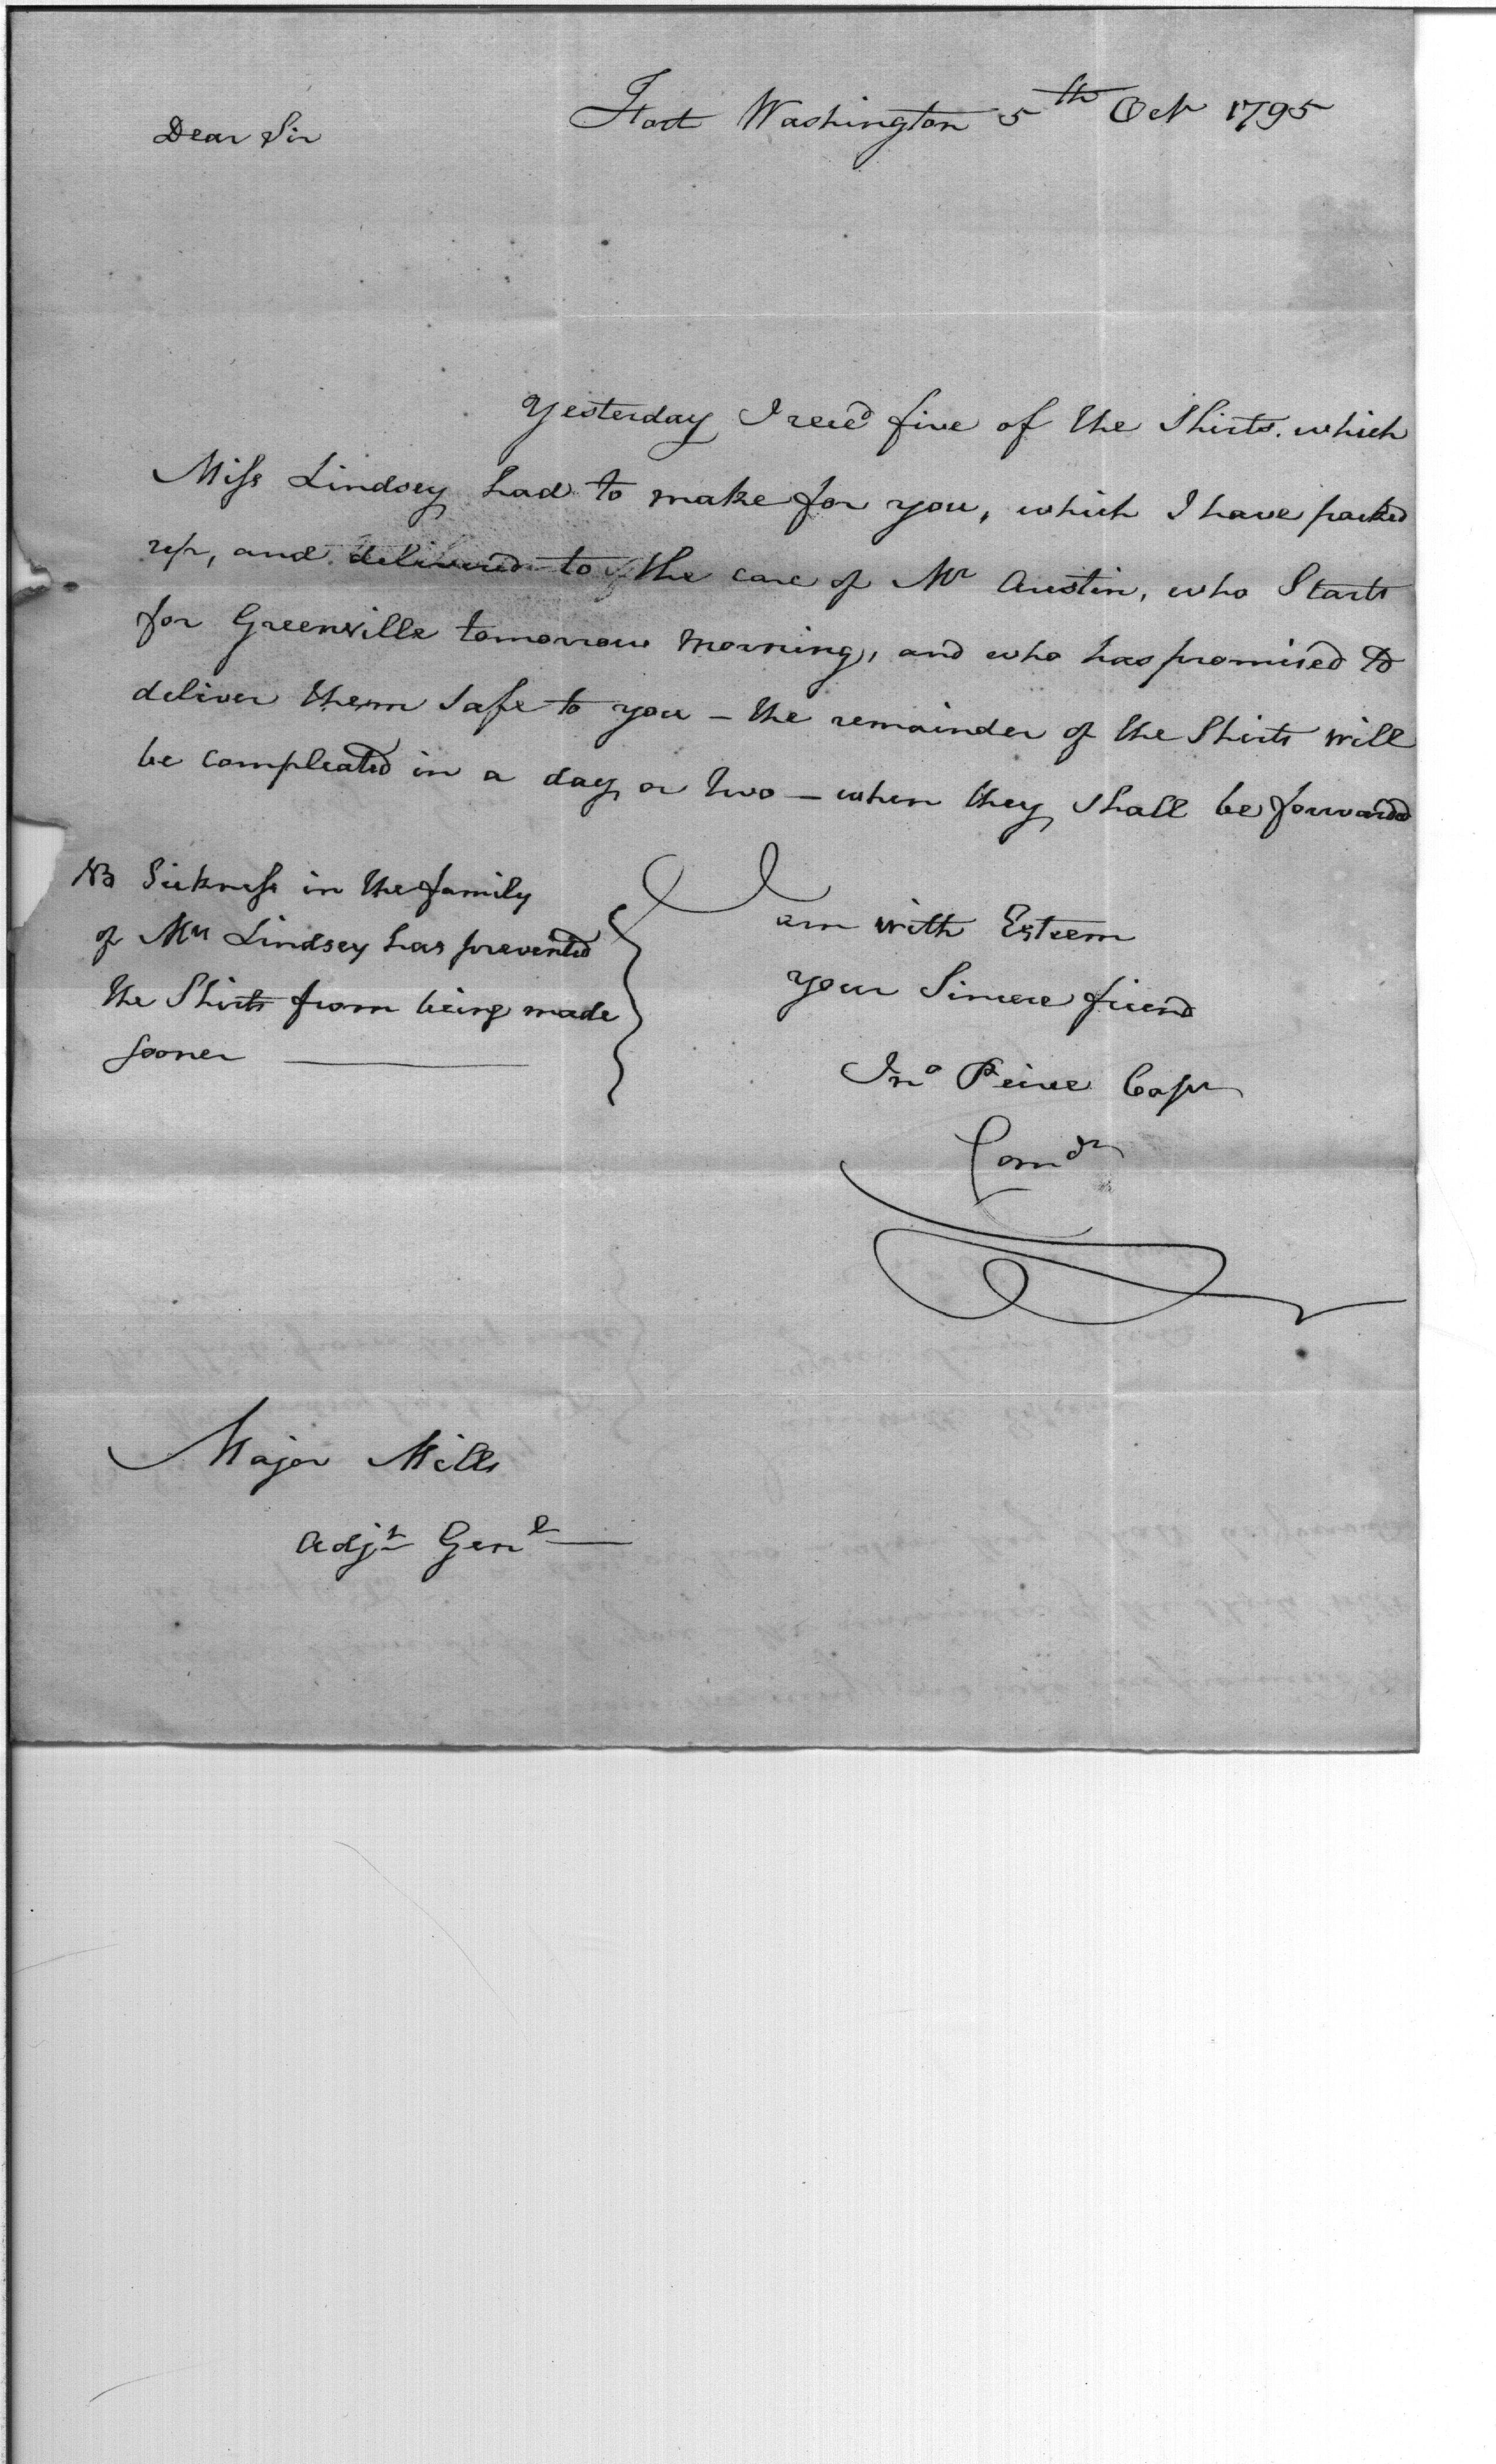 Fort Washington 5th Oct 1795
Dear Sir
Yesterday I rec'd five of the Shirts. which
Miss Lindsey had to make for you, which I have packed
up, and delivered to the care of Mr Austin, who Starts
for Greenville tomorrow morning, and who has promised to
deliver them safe to you – the remainder of the Shirts will
be compleated in a day or two – when they shall be forwarded
I
am with Esteem
your Sincere friend
Jno Peirce Capt
Comdr
NB Sickness in the family
of Mrs Lindsey has prevented
the Shirts from being made
sooner
Major Mills
Adjt Genl